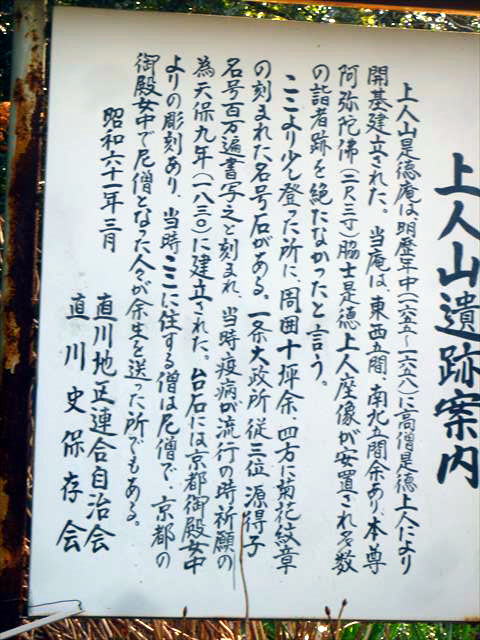 上人山遺跡案内
上人山是徳庵は、明歴年中(一六五五~一六五八)に高僧是徳上人により
開基建立された。当庵は、東西五間、南北五間余あり、本尊
阿弥陀佛(二尺三寸)脇士是徳上人座像が安置され多数
の詣者跡を絶たなかったと言う。
ここより少し登った所に、周囲十坪余、四方に菊花紋章
の刻まれた名号石がある。一条大政所従三位源得子
名号百万遍書写之と刻まれ、当時疫病が流行の時祈願の
為天保九年(一八三〇)に建立された。台石には京都御殿女中
よりの彫刻あり、当時ここに住する僧は尼僧で、京都の
御殿女中で尼僧となった人々が余生を送った所でもある。
昭和六十一年三月
直川地区連合自治会
直川史保存会